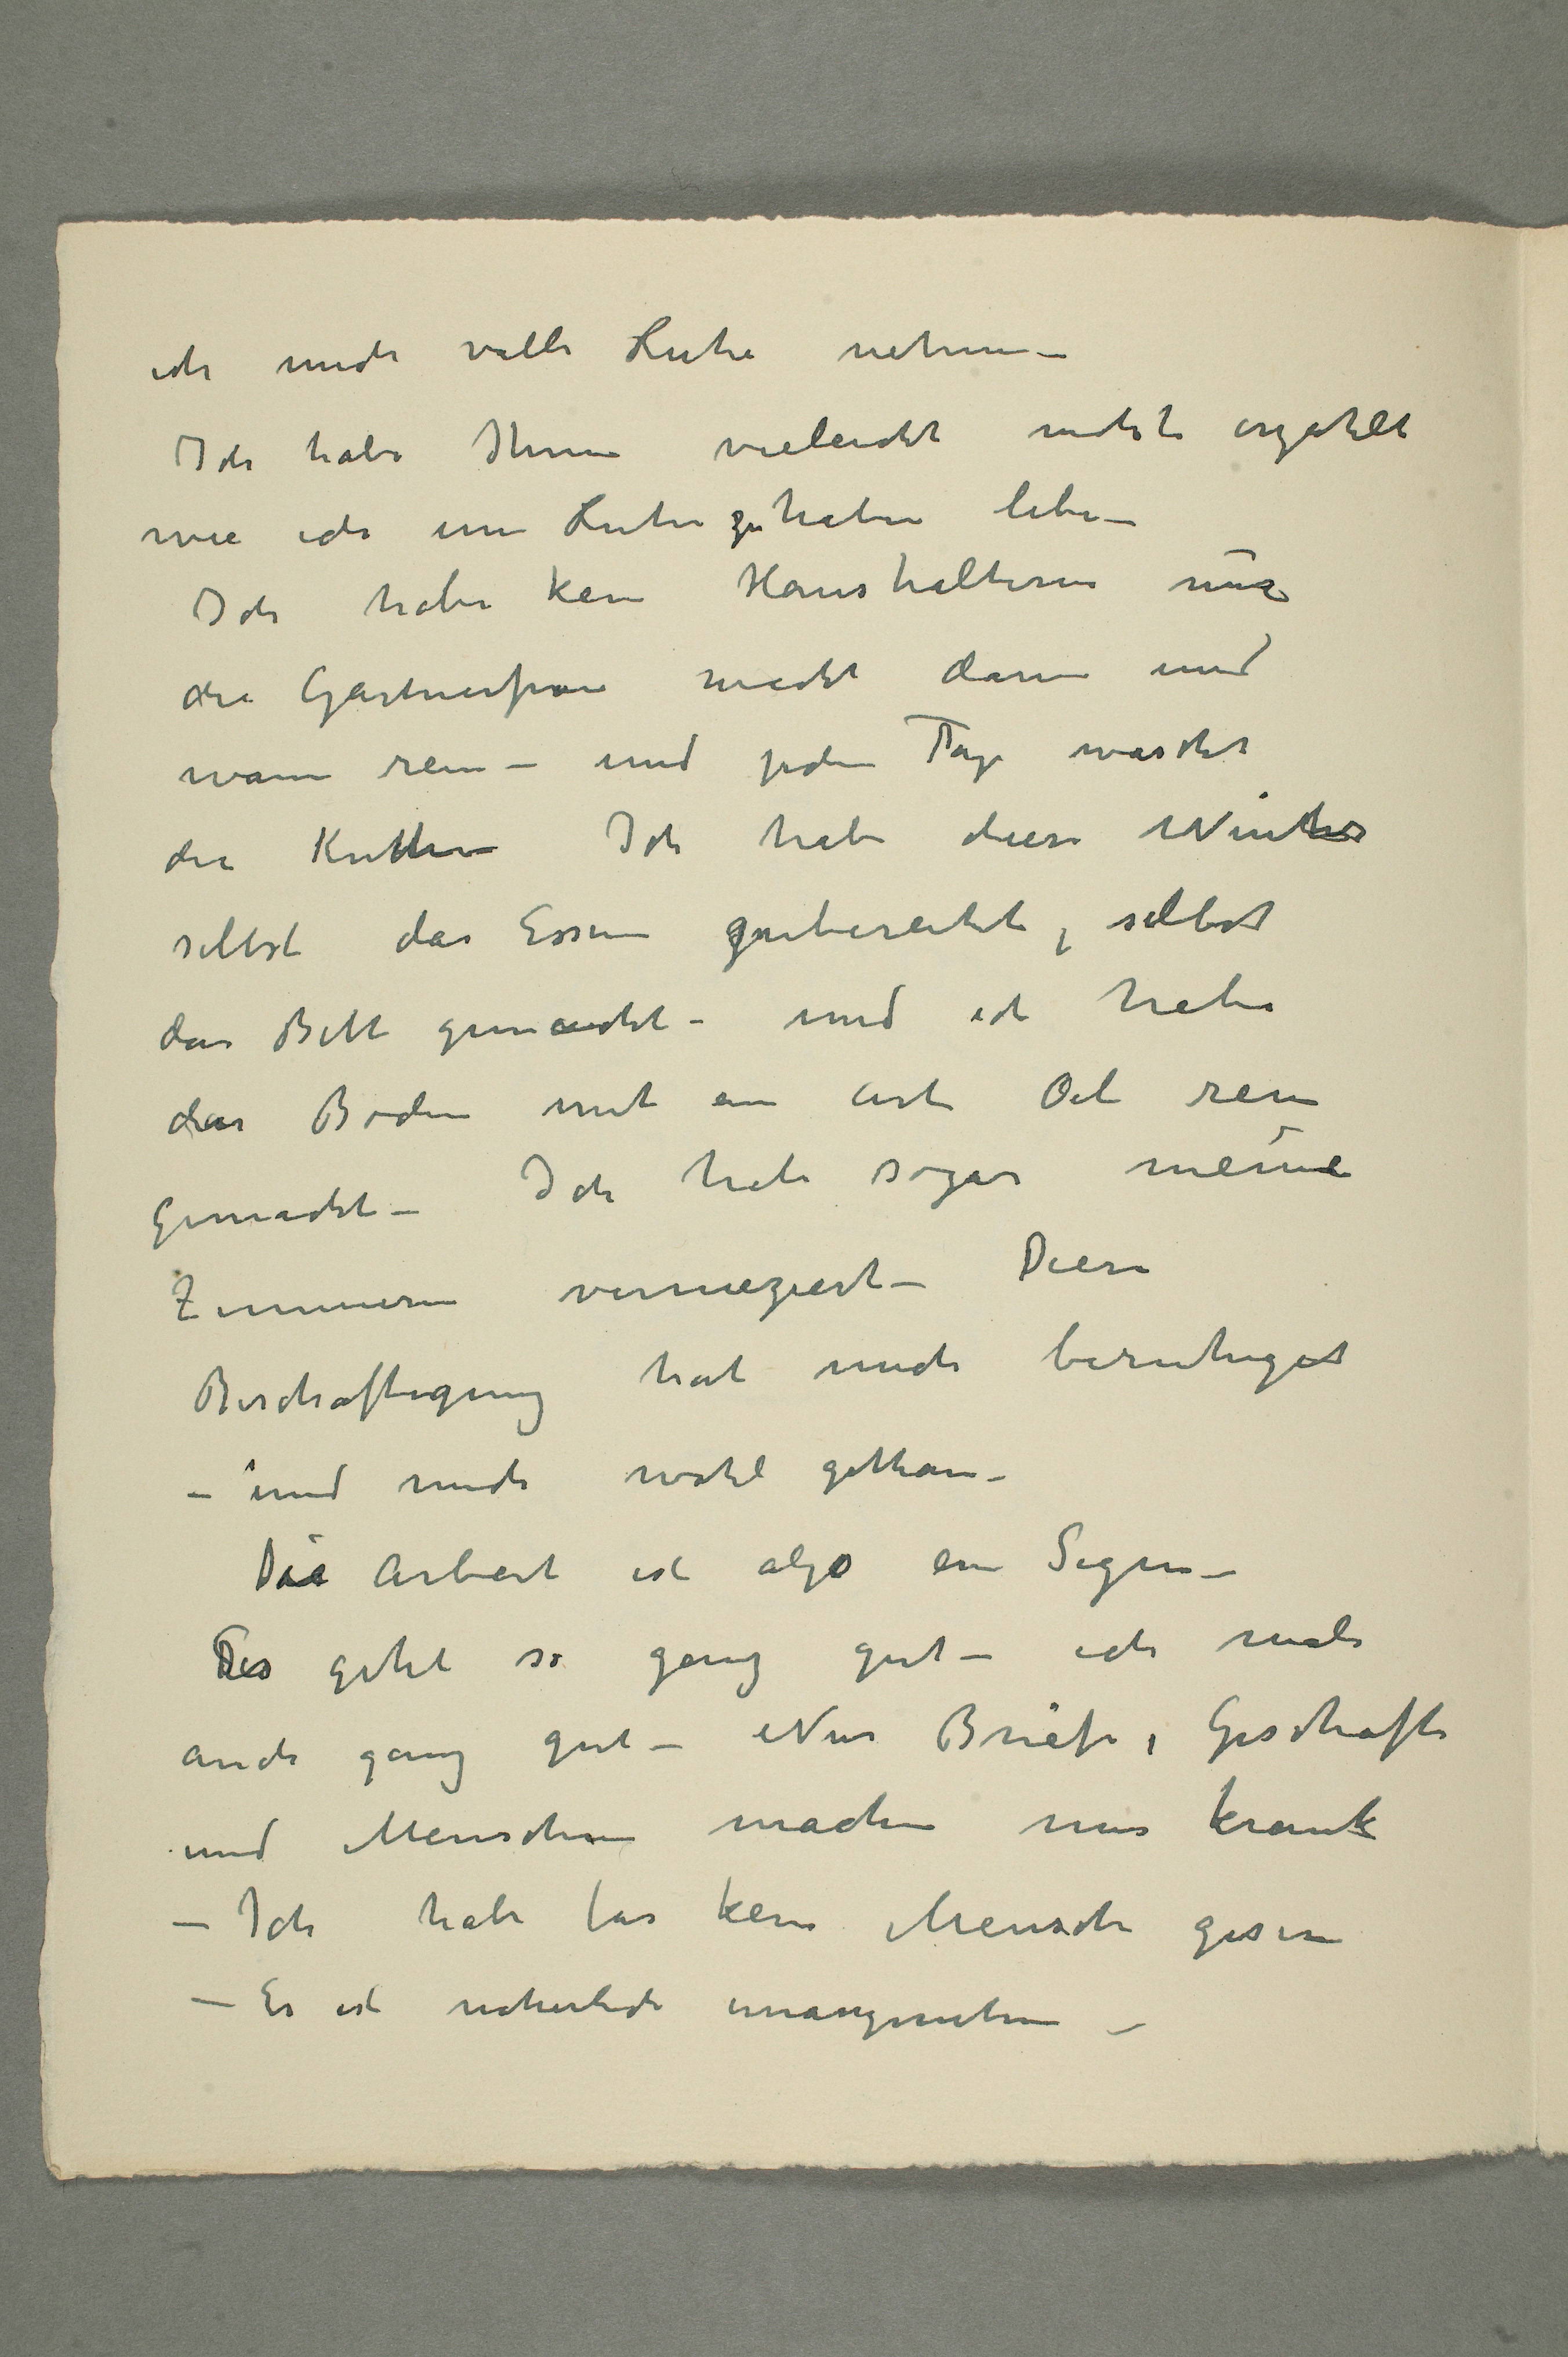 ich mich volle Ruhe nehme –
Ich habe Ihnen vieleicht nichts erzählt
wie ich um Ruhe zu haben lebe –
Ich habe kein Haushälterin nur
die Gärtnerfrau macht dann und
wann rein – und jeden Tag waschet
die Ich habe diese Winter
selbst das Essen zubereitet, selbst
das Bett gemacht – und ich habe
das Boden mit ein art Oel rein
gemacht – Ich habe sogar meine
Zimmern vernieziert – Diese
Beschäftigung hat mich beruhiget
– und mich wohl gethan –
Die Arbeit ist also ein Segen –
Es gehet so ganz gut – ich male
auch ganz gut – Nur Briefe, Geschäfte
und Menschen machen mir krank
– Ich habe fas kein Mensche gesen
– Es ist unangenehm –